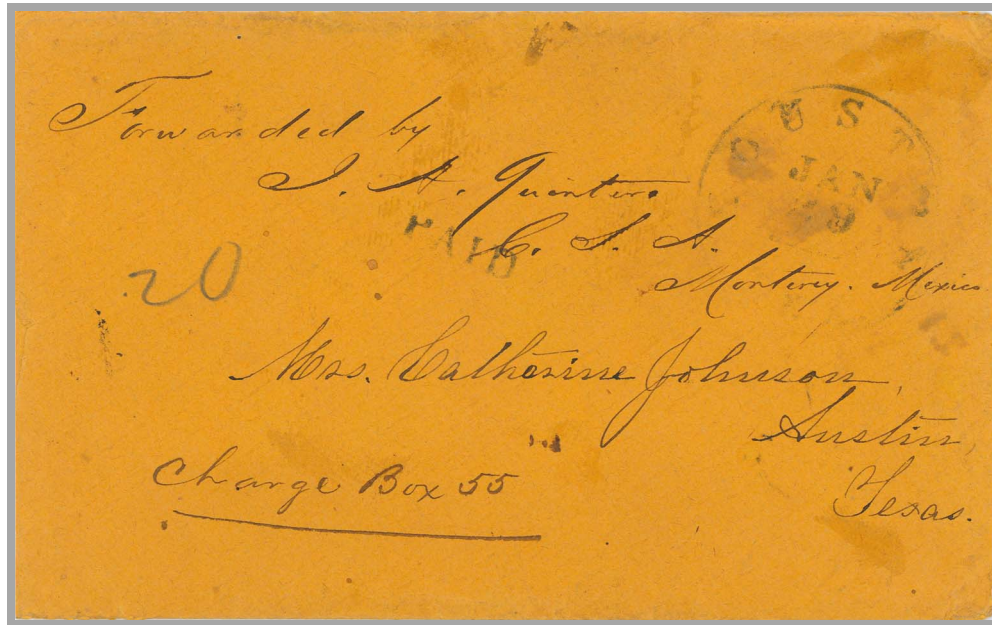 Forwarded by
J. A. Quintero
C. S. A.
Monterey. Mexico
PAID
JAN
20
Mrs. Catherine Johnson,
Austin,
Texas.
Charge Box 55